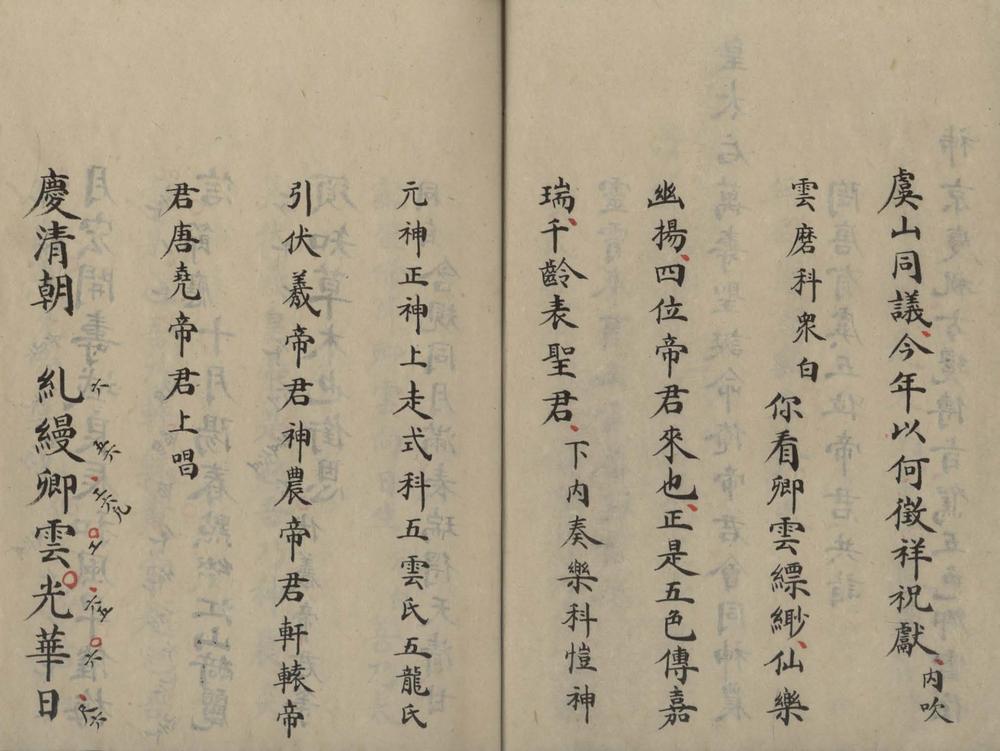 虞山同議今年以何徵祥祝獻內吹
雲磨科眾白你看卿雲縹緲仙樂
幽揚四位帝君來也正是五色傳嘉
瑞千齡表聖君下內奏樂科愷神
元神正神上走式科五雲氏五龍氏
引伏羲帝君神農帝君軒轅帝
君唐堯帝君上唱
慶清朝 糺縵卿雲光華日